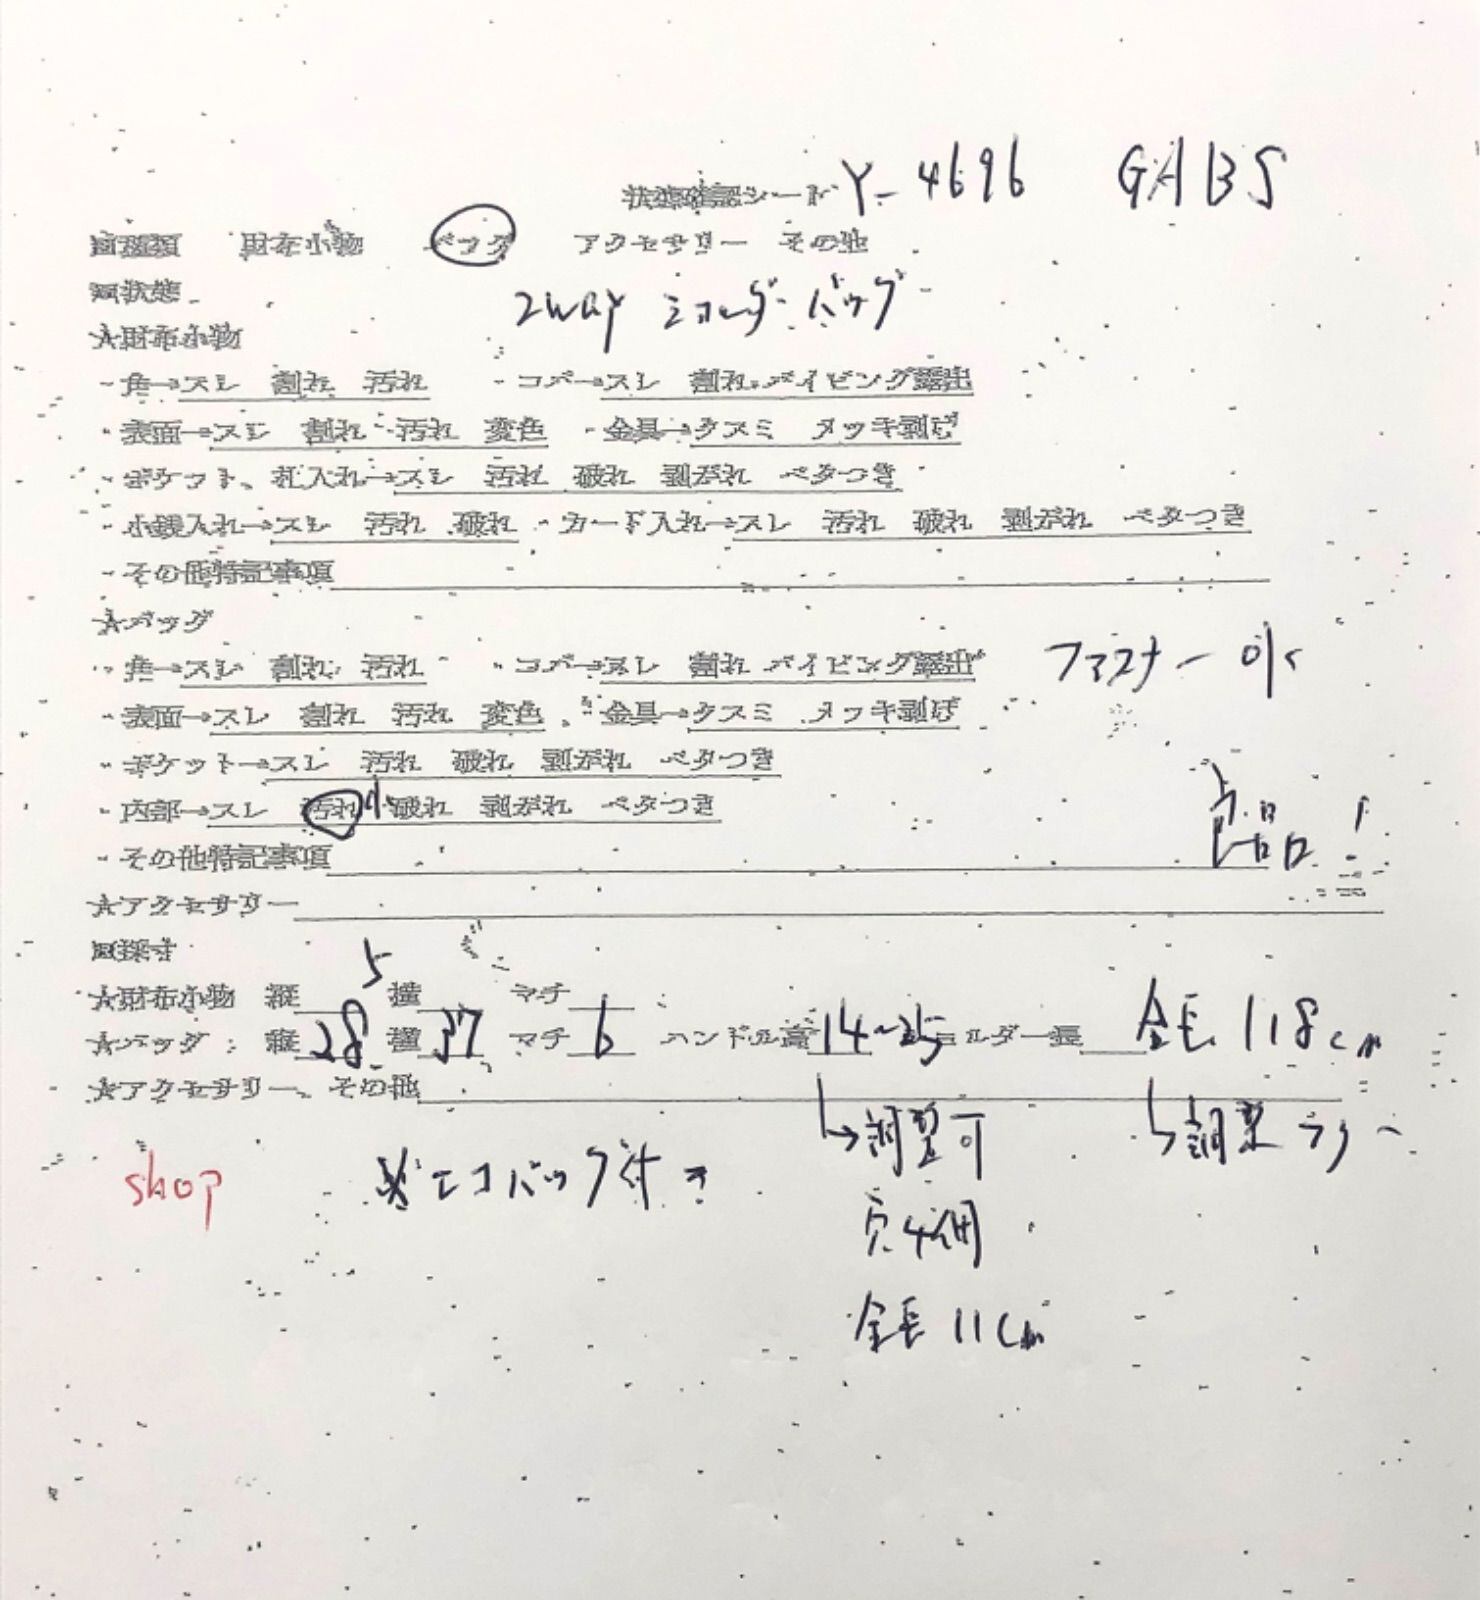 状態確認シート Y-4696 GABS
■種類 財布小物 バッグ アクセサリー その他
■状態
2way ショルダーバッグ
★財布小物
・角→スレ 割れ 汚れ ・コバ→スレ 割れ パイピング露出
・表面→スレ 割れ 汚れ 変色 ・金具→クスミ メッキ剥げ
・ポケット、札入れ→スレ 汚れ 破れ 剥がれ ベタつき
・小銭入れ→スレ 汚れ 破れ ・カード入れ→スレ 汚れ 破れ 剥がれ ベタつき
・その他特記事項
★バッグ
・角→スレ 割れ 汚れ ・コバ→スレ 割れ パイピング露出 ファスナー ok
・表面→スレ 割れ 汚れ 変色 ・金具→クスミ メッキ剥げ
・ポケット→スレ 汚れ 破れ 剥がれ ベタつき
・内部→スレ 汚れ 小 破れ 剥がれ ベタつき
・その他特記事項 良品!
★アクセサリー
■採寸
★財布小物 縦 横 マチ
★バッグ 縦28.5 横37 マチ6 ハンドル高14~25 ショルダー長 全長118cm
★アクセサリー、その他
↳調整可 ↳調整フリー
穴4個
全長11cm
shop ※エコバック付き